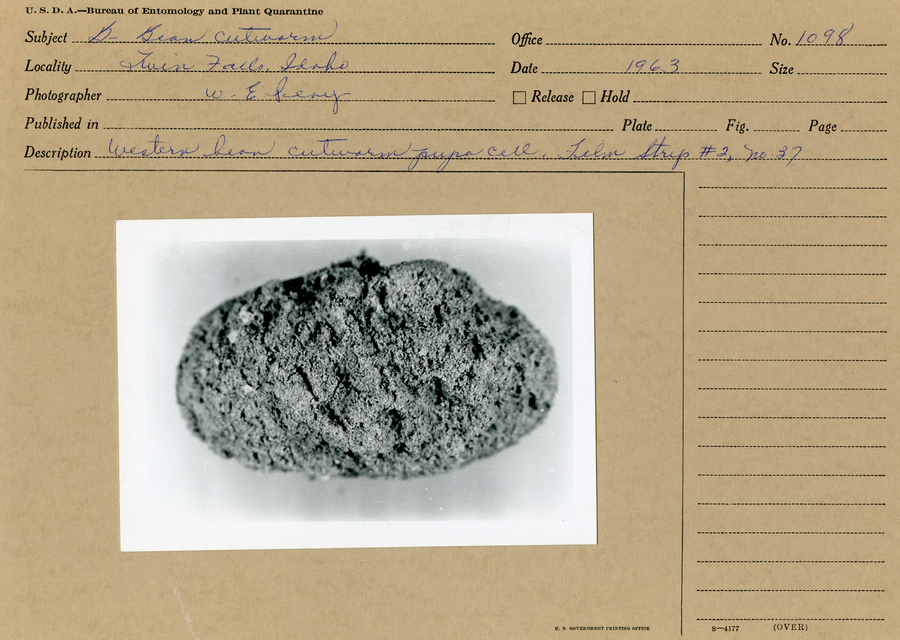 U. S. D. A.—Bureau of Entomology and Plant Quarantine
Subject B- Bean cutworm Office No. 1098
Locality Twin Falls, Idaho Date 1963 Size
Photographer W. E. Peay Release Hold
Published in Plate Fig. Page
Description Western bean cutworm pupa cell. Film Strip #2, No 37
U. S. GOVERNMENT PRINTING OFFICE
8—4177 (OVER)